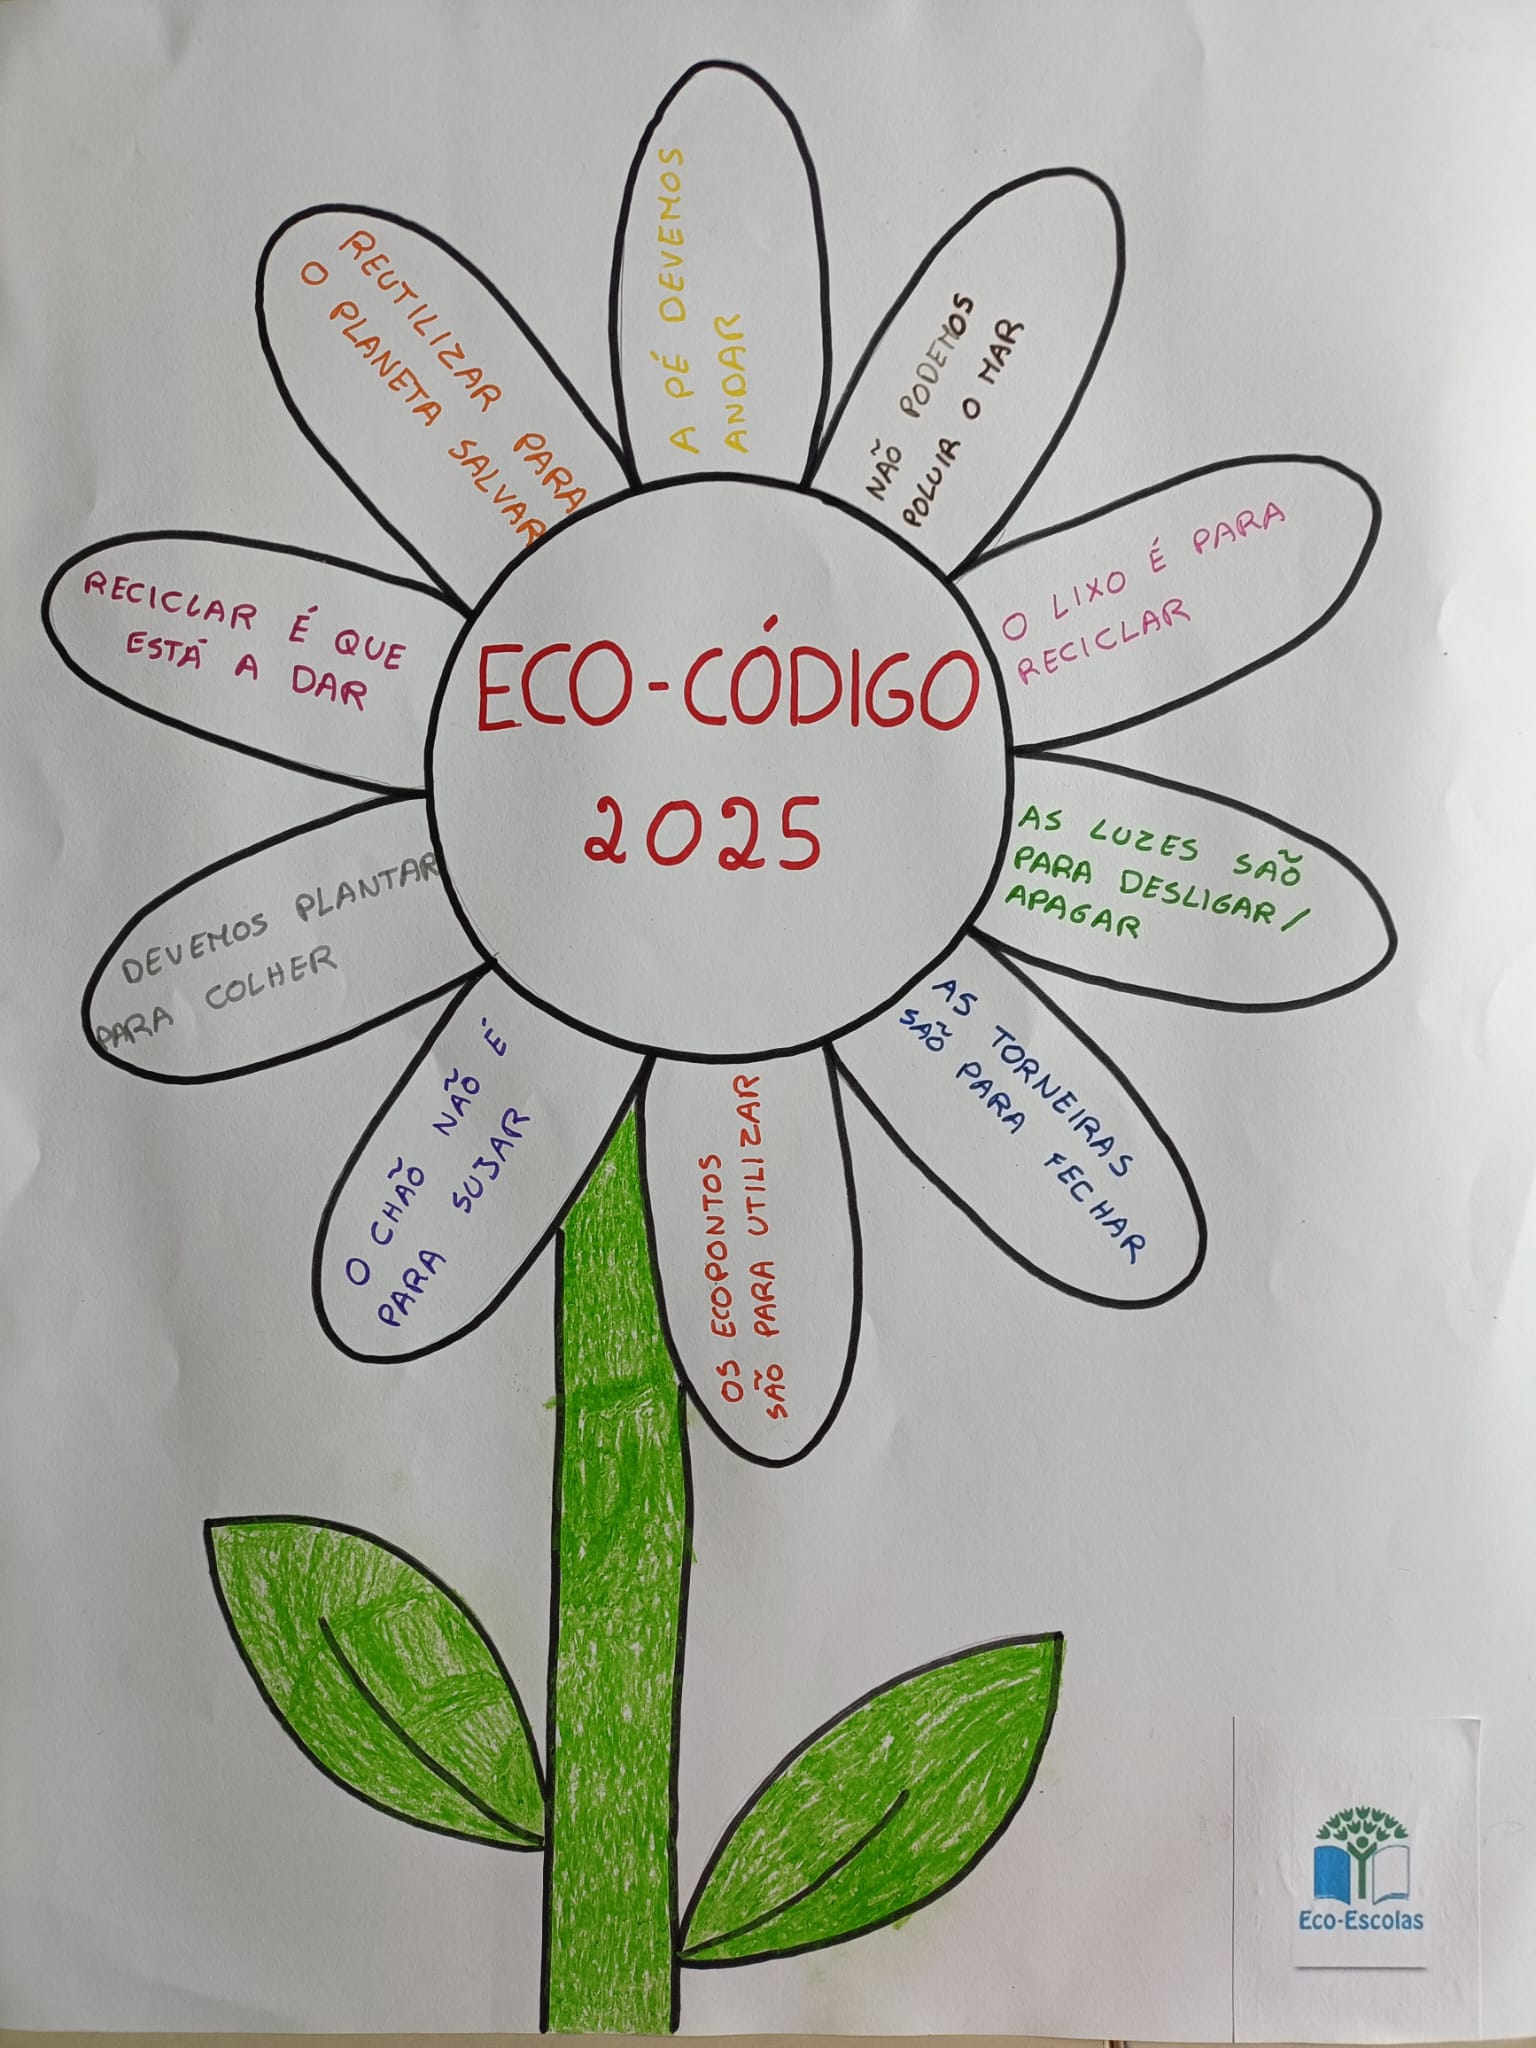 ECO-CÓDIGO
2025
A PÉ DEVEMOS
ANDAR
NÃO PODEMOS
POLUIR O MAR
O LIXO É PARA
RECICLAR
AS LUZES SÃO
PARA DESLIGAR/
APAGAR
AS TORNEIRAS
SÃO PARA FECHAR
OS ECOPONTOS
SÃO PARA UTILIZAR
O CHÃO NÃO É
PARA SUJAR
DEVEMOS PLANTAR
PARA COLHER
RECICLAR É QUE
ESTÁ A DAR
REUTILIZAR PARA
O PLANETA SALVAR
Eco-Escolas